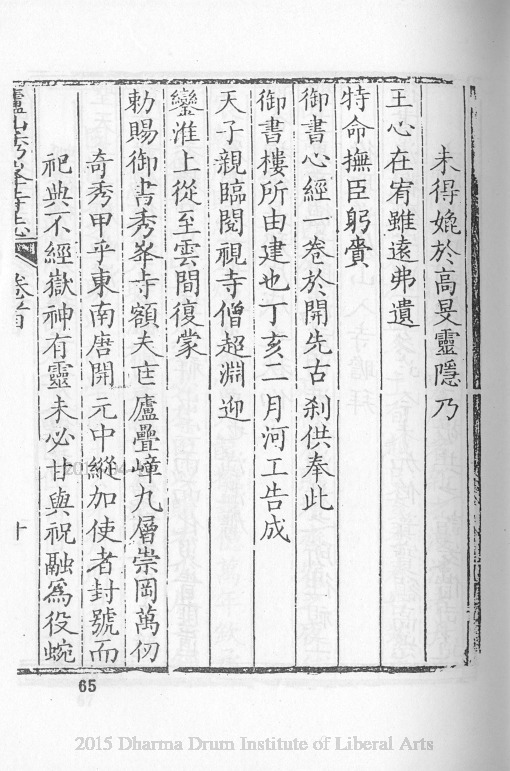 未得媲於高旻靈隱乃
王心在宥雖遠弗遺
特命撫臣躬賫
御書心經一卷於開先古刹供奉此
御書樓所由建也丁亥二月河工告成
天子親臨閱視寺僧超淵迎
鑾淮上從至雲間復蒙
勅賜御書秀峯寺額夫匡廬疊嶂九層崇岡萬仞
奇秀甲乎東南唐開元中縱加使者封號而
祀典不經嶽神有靈未必甘與祝融爲役蜿
廬山秀峯寺志 卷首 十
65
2015 Dharma Drum Institute of Liberal Arts